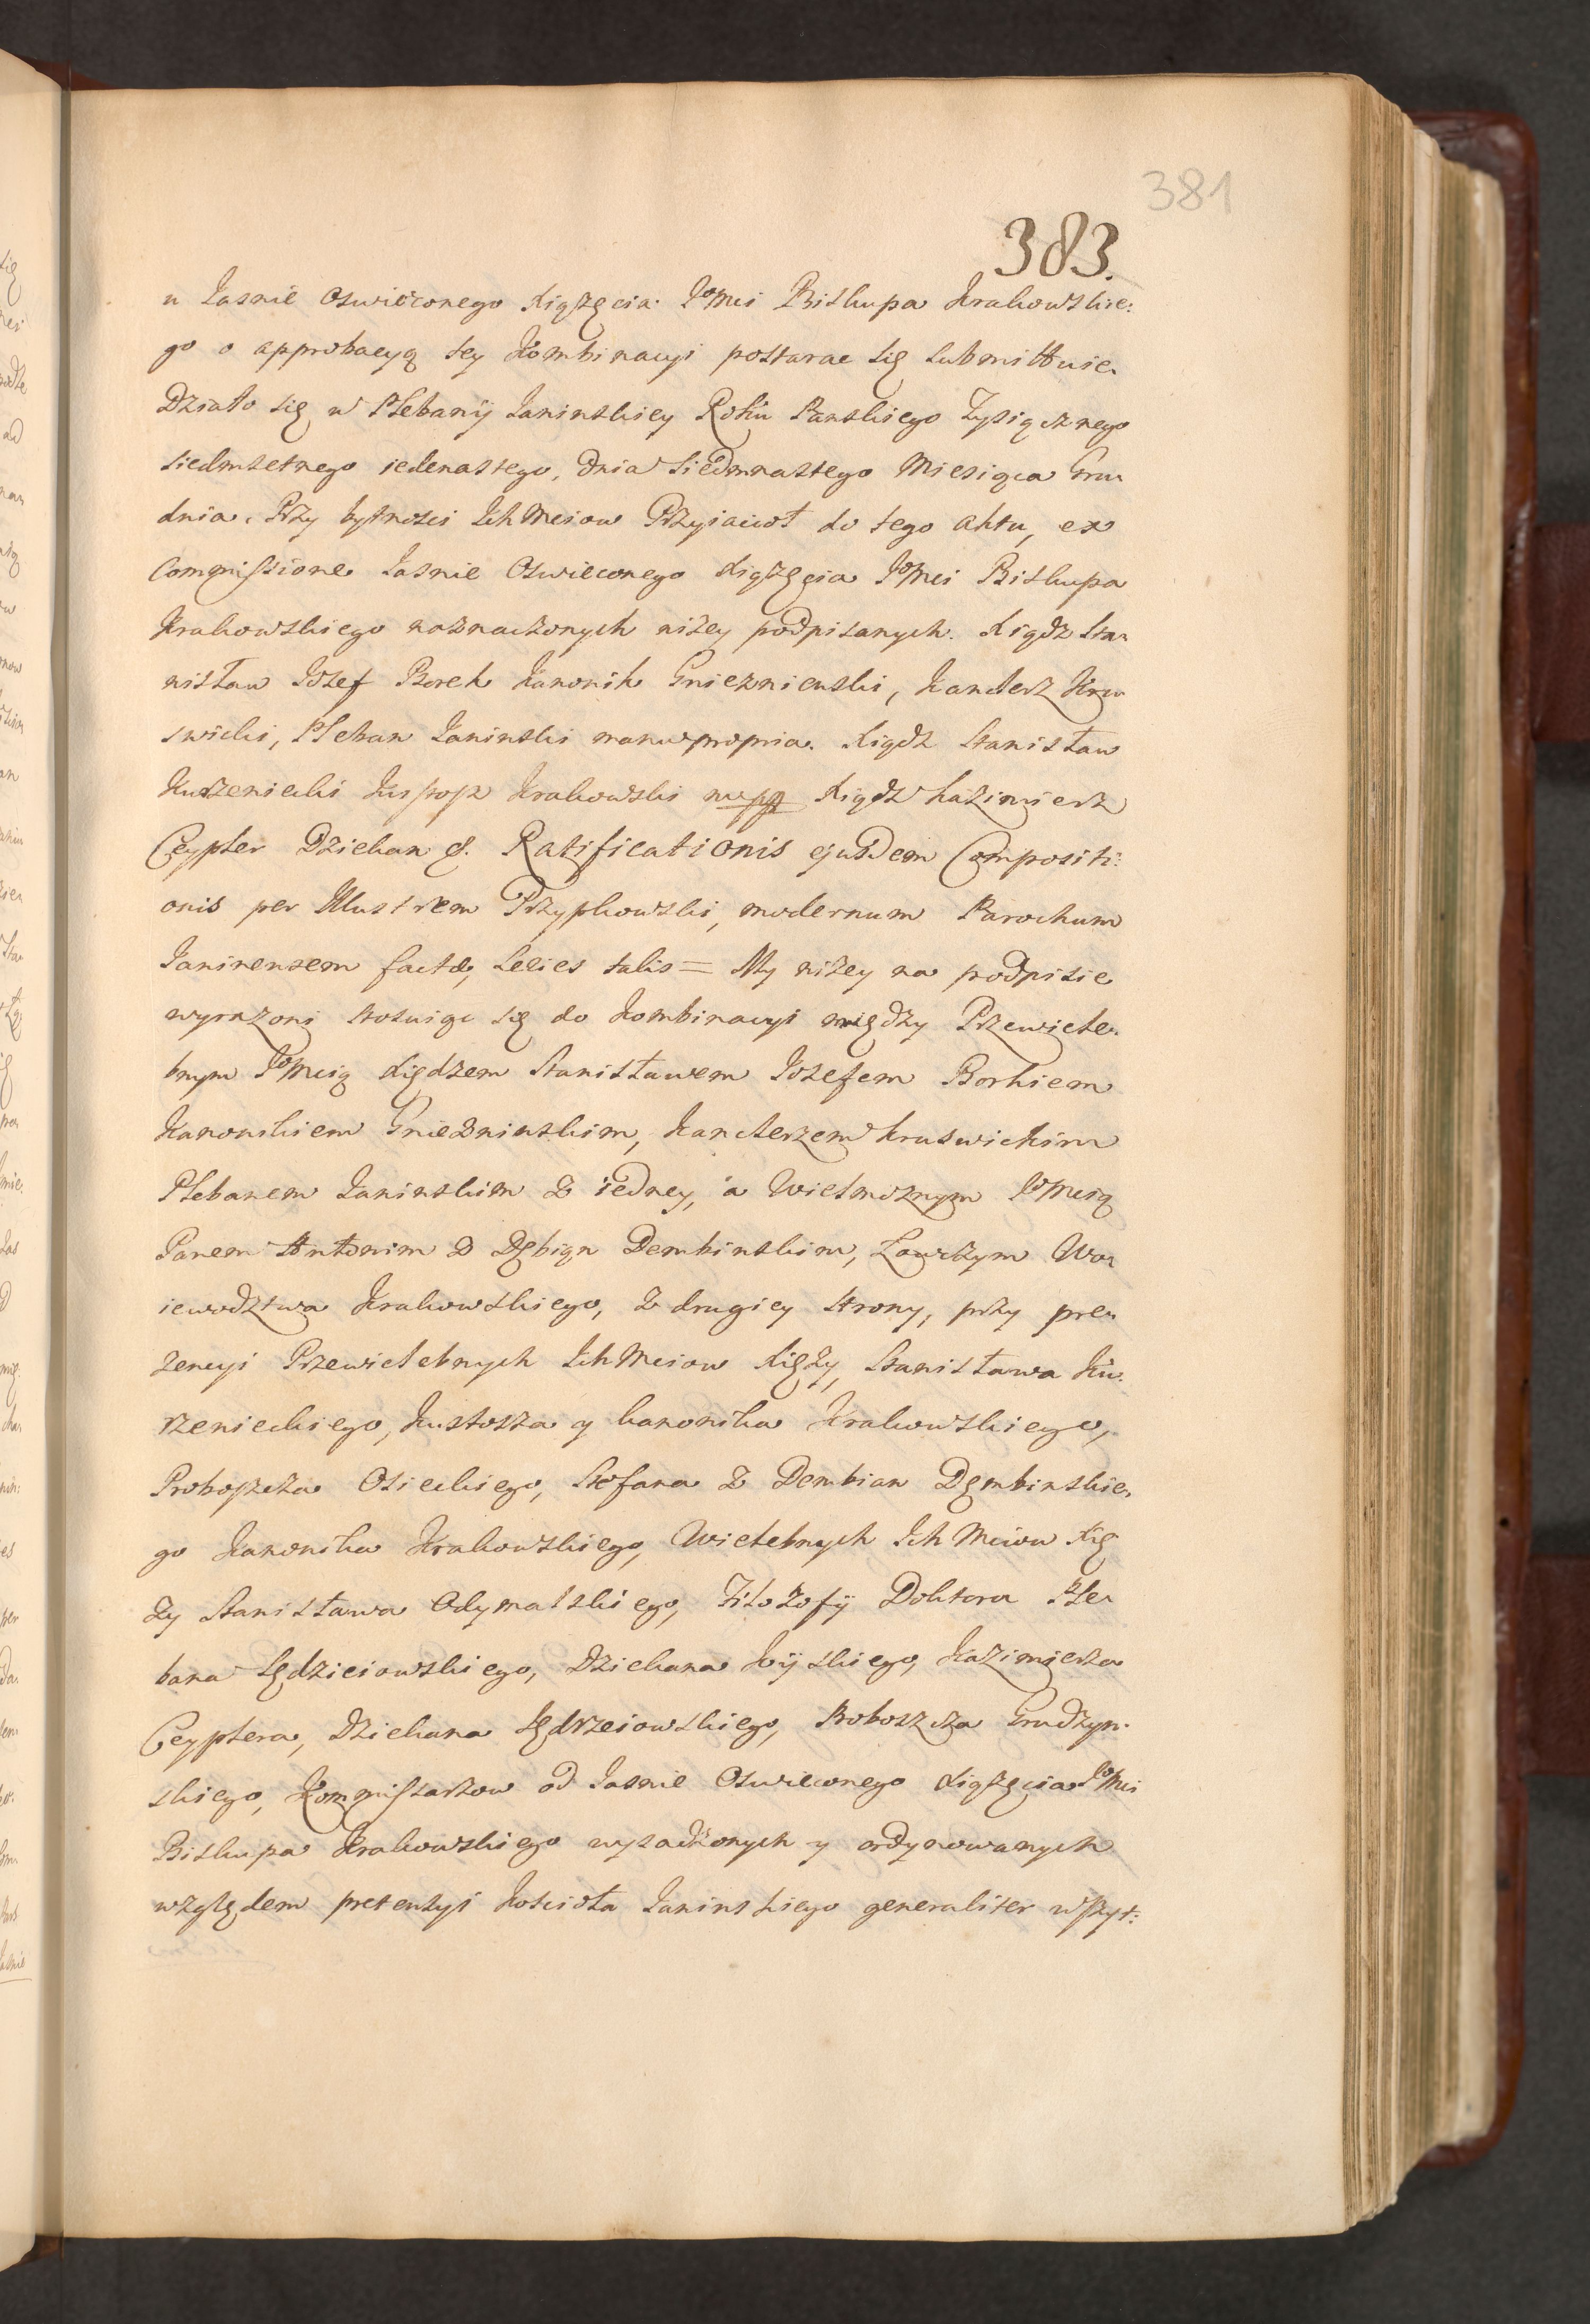 381
383.
u Jasnie Oswieconego Xiążęcia JoMci Biskupa Krakowskie:
go o approbacyą tey Kombinacyi postarac się submittuie.
Działo się w Plebanij Janinskiey Roku Panskiego Tysiącznego
siedmsetnego iedenastego, dnia siedmnastego Miesiąca Gru
dnia. Przy bytnosci IchMciow Przyiacioł do tego aktu, ex
Commissione Jasnie Oswieconego Xiążęcia JoMci Biskupa
Krakowskiego naznaczonych niżey podpisanych. Xiądz Sta
nisław Jozef Borek Kanonik Gnieznienski, Kanclerz Kru
swicki, Pleban Janinski manu propria. Xiądz Stanisław
Kurzeniecki Kustosz Krakowski mpp Xiądz Kazimierz
Ceypler Dziekan J. Ratificationis ejusdem Compositi:
onis per Illustrem Przypkowski, modernum Parochum
Janinensem factæ, series talis = My niżey na podpisie
wyrazoni stosuiąc się do Kombinacyi między Przewiele
bnym JoMcią Xiędzem Stanisławem Jozefem Borkiem
Kanonikiem Gniezninskim, Kanclerzem Kruswickim
Plebanem Janinskim z iedney, a Wielmoznym JoMcią
Panem Antonim z Dębian Dembinskim, Łowczym Wo
iewodztwa Krakowskiego, z drugiey strony, przy pre
zencyi Przewielebnych IchMciow Xięży, Stanisława Ku
rzenieckiego, Kustosza y kanonika Krakowskiego,
Proboszcza Osieckiego, Stefana z Dembian Dembinskie
go Kanonika Krakowskiego, Wielebnych Ich Mciow Xię
ży Stanisława Odymalskiego, Filozofij Doktora Ple
bana Sędzieiowskiego, Dziekana Kijskiego, Kazimierza
Ceyplera, Dziekana Jędrzeiowskiego, Proboszcza Grudzyn
skiego, Kommissarzow od Jasnie Oswieconego Xiążęcia JoMci
Biskupa Krakowskiego wysadzonych y ordynowanych
względem pretensyi Kościoła Janinskiego generaliter wszyt: